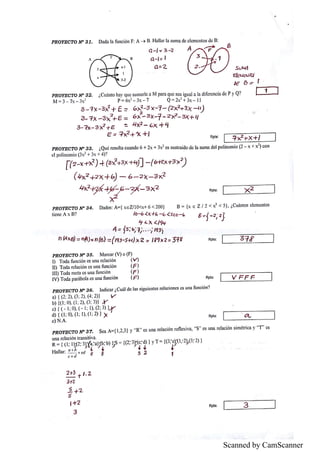 PROYECTO Nº 31. Dada la función F: A → B. Hallar la suma de elementos de B:
A B a-1 = 3-2 A F B
a-1 = 1
a = 2
SUMA
ELEMENTOS
DE B = 1
1
PROYECTO Nº 32. ¿Cuánto hay que sumarle a M para que sea igual a la diferencia de P y Q?
M = 3 – 7x – 3x² P = 6x² – 3x – 7 Q = 2x² + 3x – 11
3-7x-3x²+E = 6x²-3x-7-(2x²+3x-11)
3-7x-3x²+E = 6x²-3x-7-2x²-3x+11
3-7x-3x²+E = 4x²-6x+4
E = 7x²+x+1
Rpta: 7x²+x+1
PROYECTO Nº 33. ¿Qué resulta cuando 6 + 2x + 3x² es sustraído de la suma del polinomio (2 – x + x²) con
el polinomio (3x² + 3x + 4)?
(4x²+2x+6) - 6-2x-3x²
4x²+2x+6-6-2x-3x²
x²
Rpta: x²
PROYECTO Nº 34. Datos: A={ x∈Z/10<x+6 <200} B = {x ∈ Z / 2 < x² < 5}, ¿Cuántos elementos
tiene A x B? 10-6<x+6-6<200-6 B={-2,2}
4<x<194
A={5,6,7,...,193}
n(AxB) = n(A)×n(B) = (193-5+1)x2 = 189x2 = 378 Rpta: 378
PROYECTO Nº 35. Marcar (V) o (F)
I) Toda función es una relación (V)
II) Toda relación es una función (F)
III) Toda recta es una función (F)
IV) Toda parábola es una función (F)
Rpta: V F F F
PROYECTO Nº 36. Indicar ¿Cuál de las siguientes relaciones es una función?
a) { (2; 2), (3; 2), (4; 2)}
b) {(1; 0), (1; 2), (1; 3)}
c) { ( - 1; 0), ( - 1; 1), (2; 2) }
d) { (1; 0), (1; 1), (1; 2) }
e) N.A.
Rpta: a
PROYECTO Nº 37. Sea A={1,2,3} y "R" es una relación reflexiva, "S" es una relación simétrica y "T" es
una relación transitiva.
Hallar:
3+2
5
1+2
3
Rpta: 3
Scanned by CamScanner